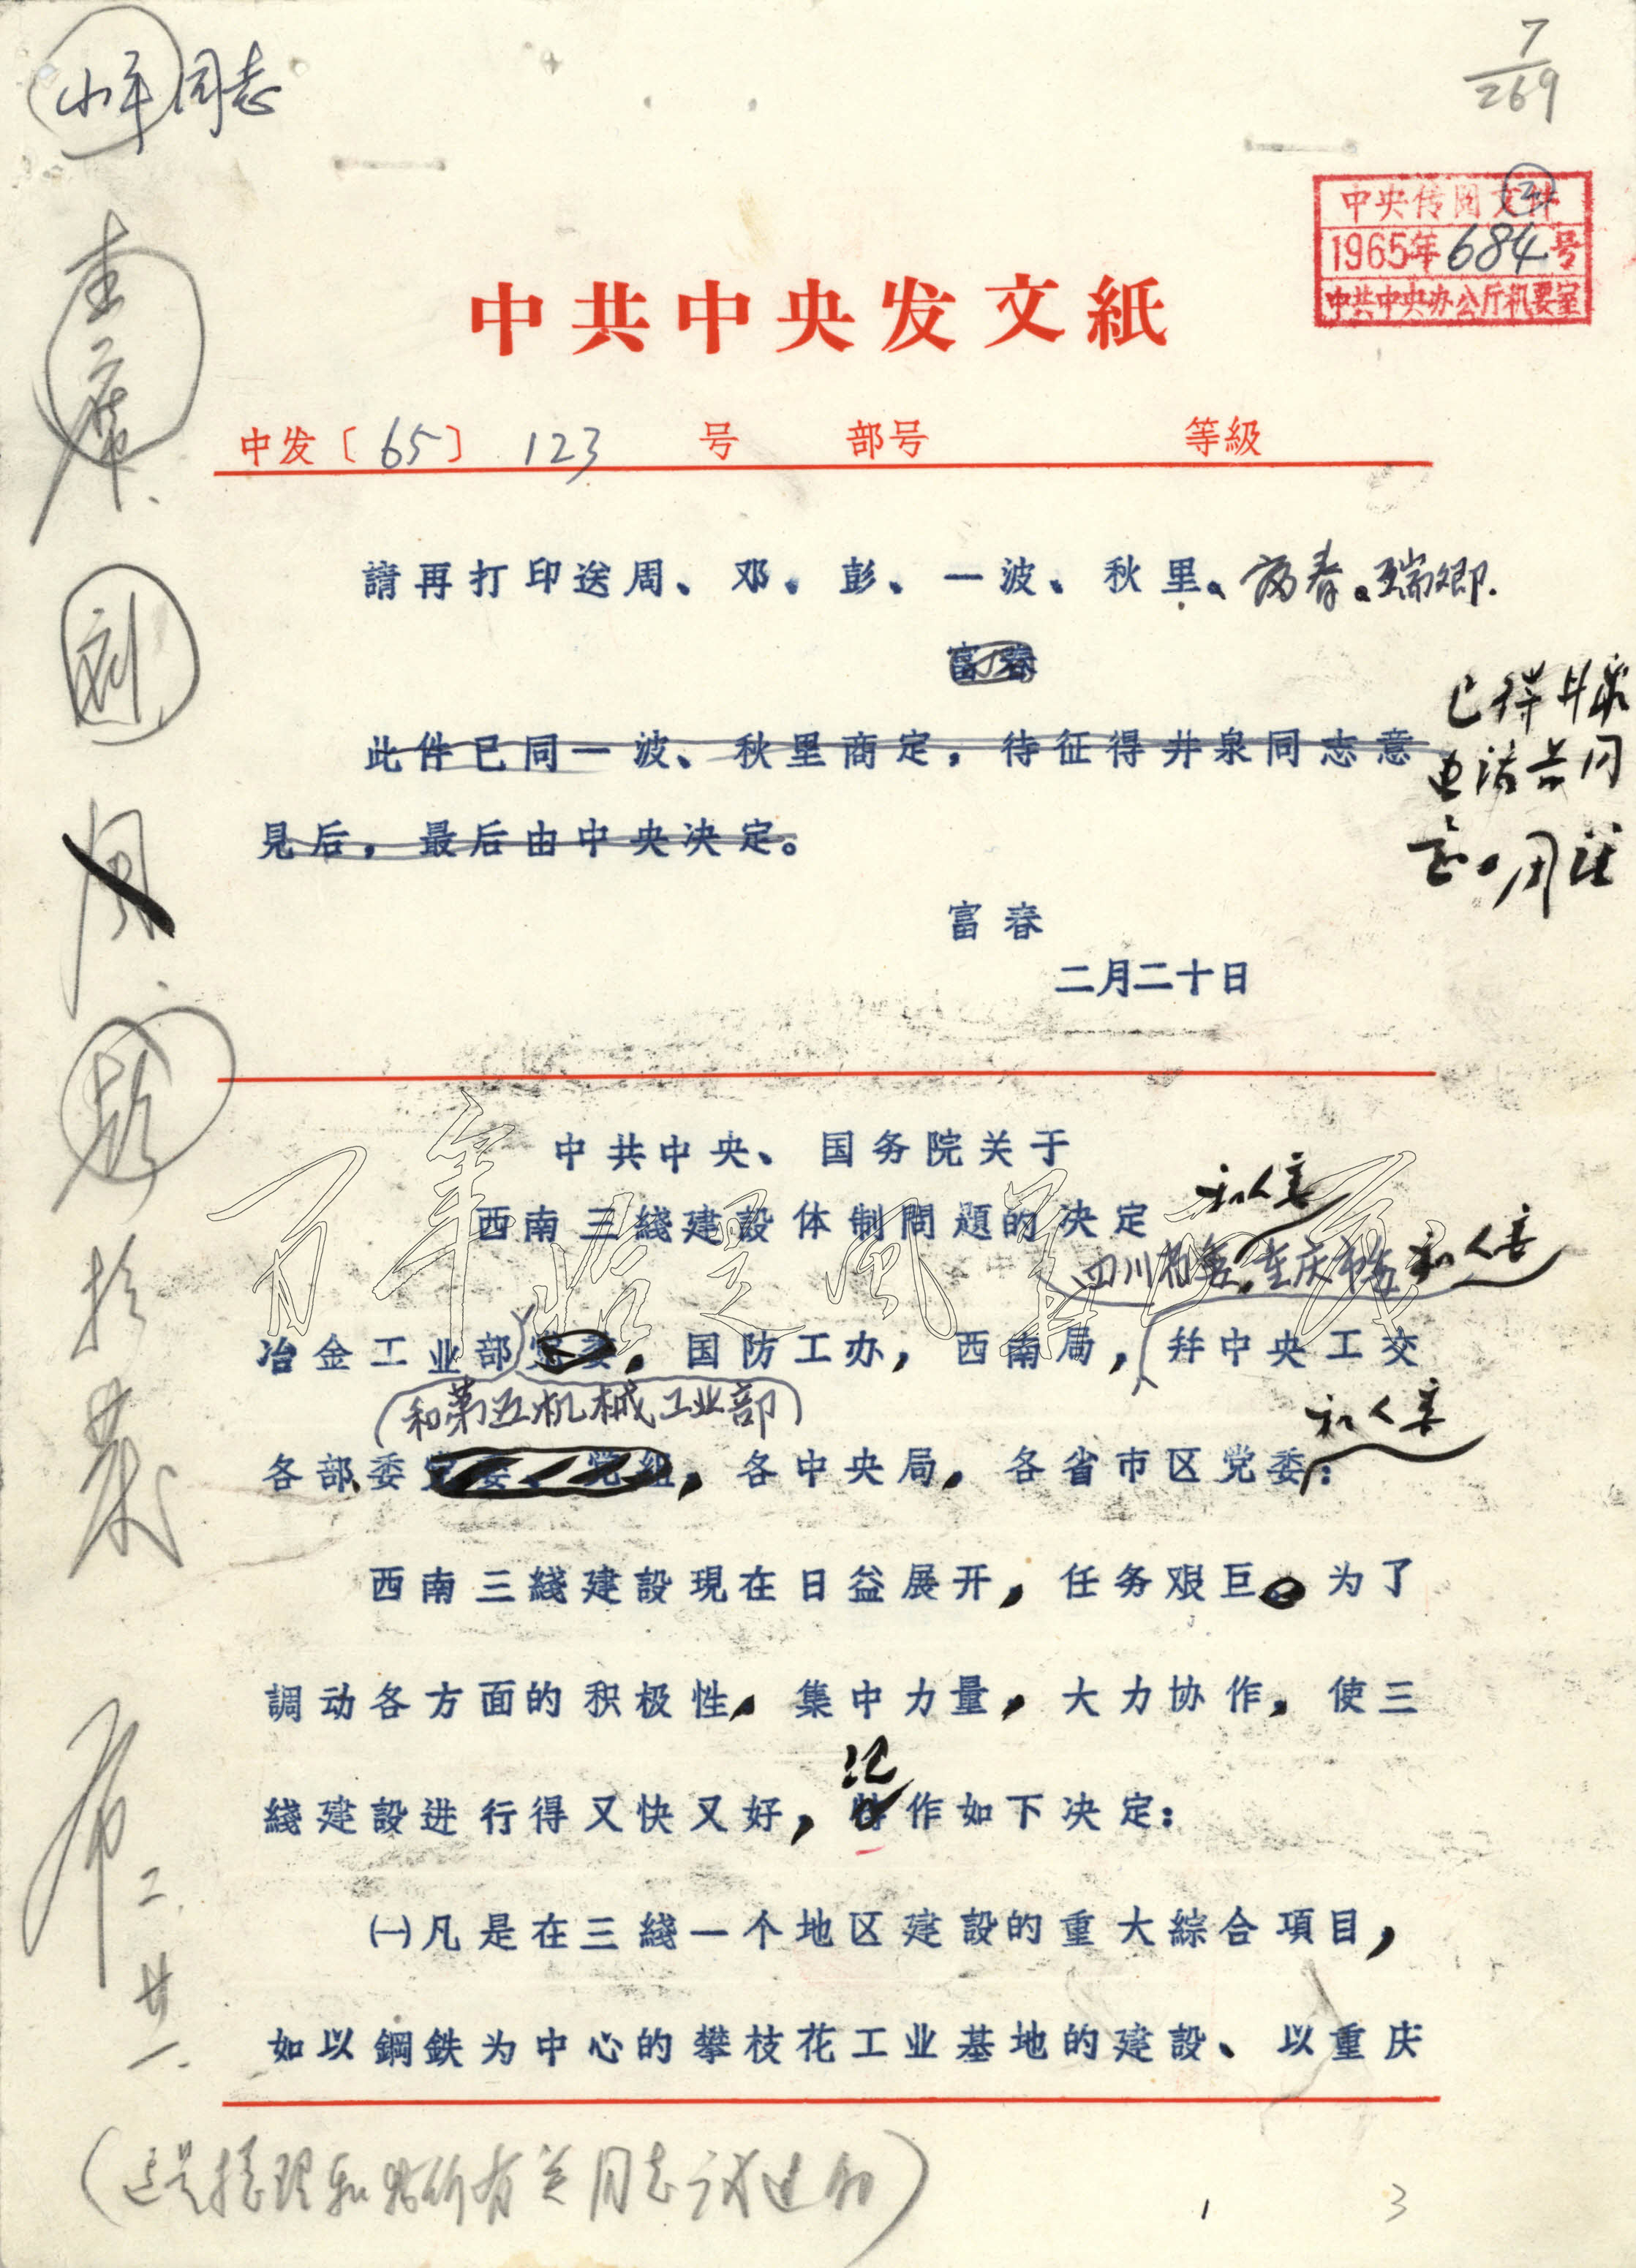 小平同志
7/269
中央传阅文件
②
1965年684号
中共中央办公厅机要室
中共中央发文紙
中发〔65〕123号 部号 等級
主席、
刘、
周、
彭
批发
二.廿一.
請再打印送周、邓、彭、一波、秋里、富春、瑞卿.
富春
此件已同一波、秋里商定，待征得井泉同志意
見后，最后由中央决定。
已得井泉
电话共同
意。周注
富春
二月二十日
中共中央、国务院关于
西南三綫建設体制問題的决定
和人委
四川省委，重庆市委和人委
冶金工业部党委，国防工办，西南局，幷中央工交
和第五机械工业部
和人委
各部、委党委、党組，各中央局，各省市区党委：
西南三綫建設現在日益展开，任务艰巨。为了
調动各方面的积极性，集中力量，大力协作，使三
记
綫建設进行得又快又好，特作如下决定：
㈠凡是在三綫一个地区建設的重大綜合項目，
如以鋼鉄为中心的攀枝花工业基地的建設、以重庆
有关同志
1
3